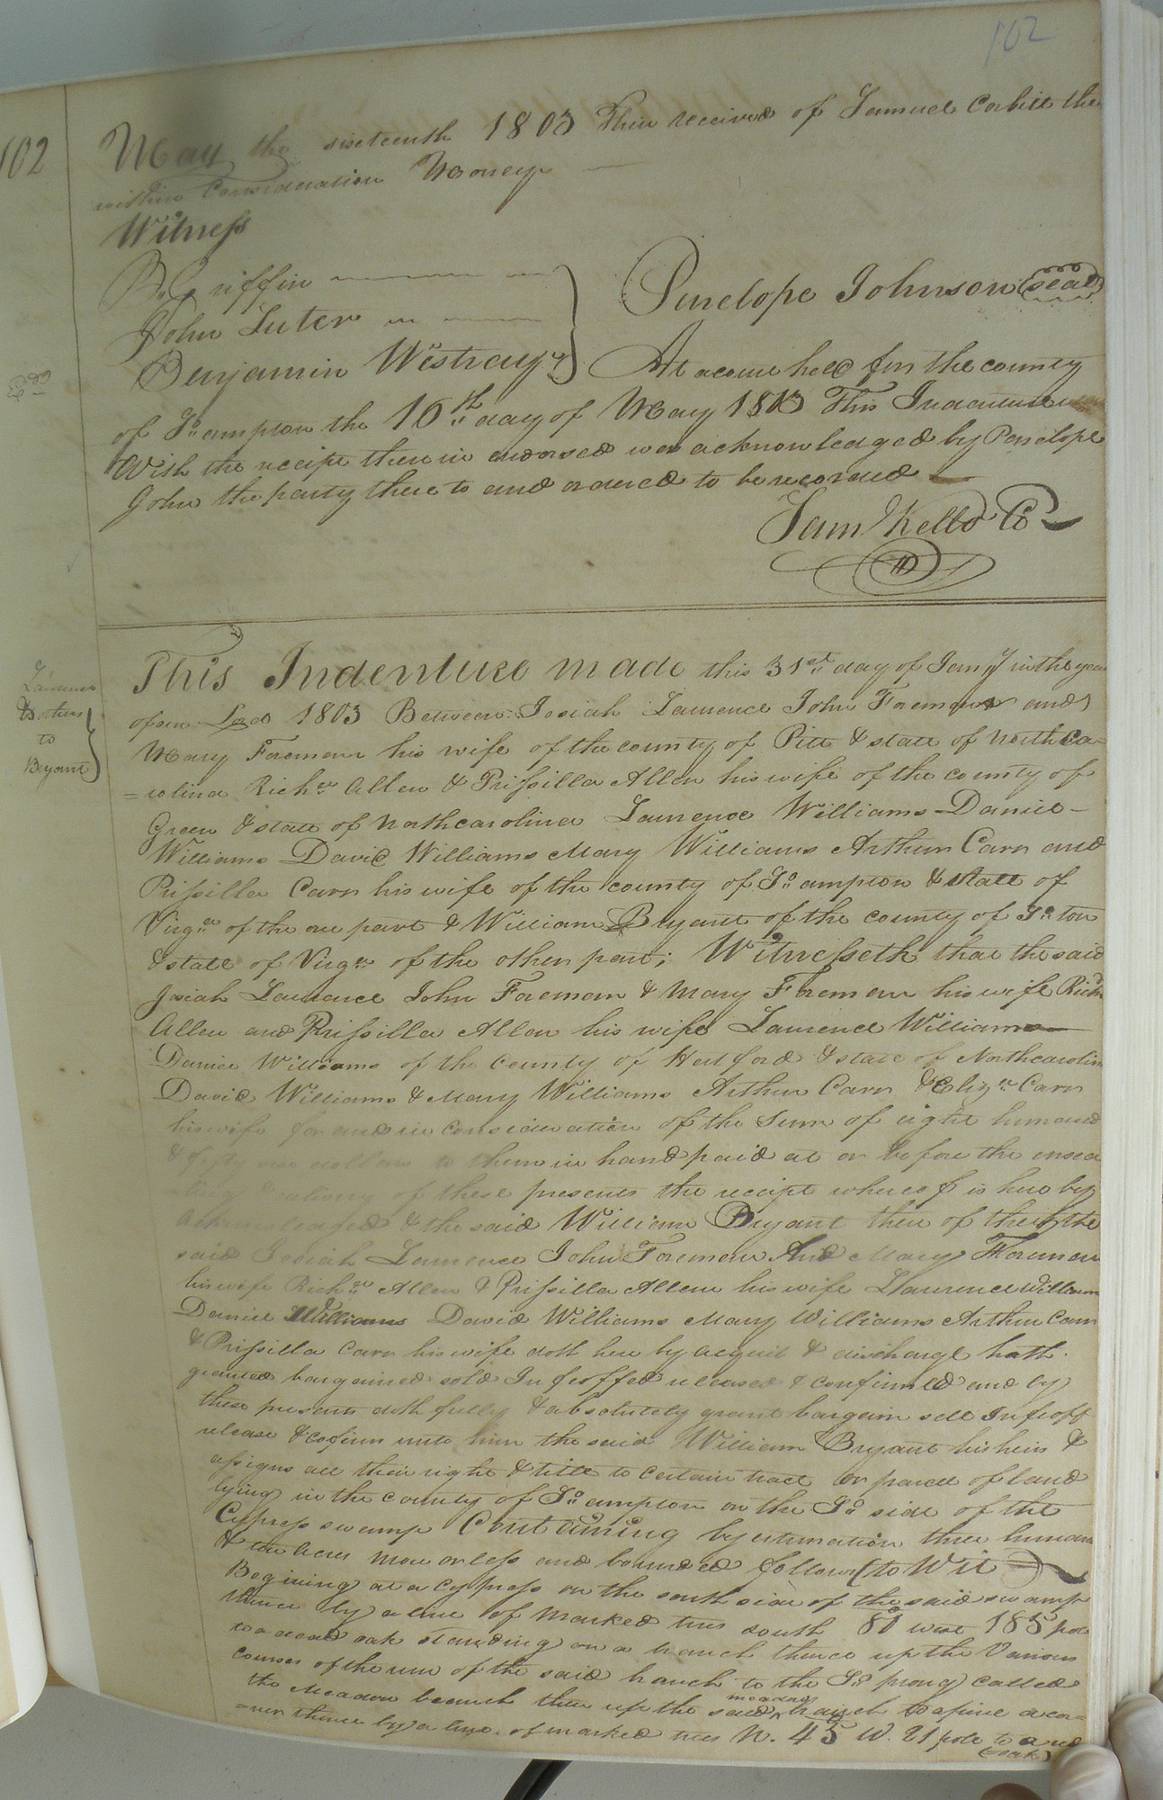 102
102
May the sixteenth 1803 Then received of Samuel Corbitt the
within Consideration Money
Witness
B. Griffin
John Luter
Benjamin Westray
Penelope Johnson (seal)
At a court held for the county
of So. ampton the 16th day of May 1803 This Indenture
With the receipt there in endorsed was acknowledged by Penelope
John the party there to and ordered to be recorded
Sam Kello Co
Laurence
& others
to
Bryant
This Indenture made this 31st day of Jany in the year
of our Lord 1803 Between Josiah Laurence John Foreman and
Mary Foreman his wife of the county of Pitt & state of North Ca-
=rolina Richd Allen & Prissilla Allen his wife of the county of
Green & state of Northcarolina Laurence Williams Daniel
Williams David Williams Mary Williams Arthur Carr and
Prissilla Carr his wife of the county of So. ampton & state of
Virga of the one part & William Bryant of the county of So. ton
& state of Virga of the other part; Witnesseth that the said
Josiah Laurance John Foreman & Mary Foreman his wife Richd
Allen and Prissilla Allen his wife Laurence Williams
Daniel Williams of the county of Hertford & state of Northcarolin
David Williams & Mary Williams Arthur Carr & Eliza Carr
his wife for and in consideration of the Sum of eight hundred
& fifty one dollars to them in hand paid at or before the ensea
ling & delivery of these presents the receipt whereof is here by
acknowledged & the said William Bryant thereof they the
said Josiah Laurence John Foreman And Mary Foreman
his wife Richd Allen & Prissilla Allen his wife Llaurence William
Daniel Williams David Williams Mary Williams Arthur Carr
& Prissilla Carr his wife doth here by acquit & discharge hath
granted bargained sold Infeoffed released & confirmed and by
these presents doth fully & absolutely grant bargain sell Infeoff
release & confirm unto him the said William Bryant his heirs &
assigns all their right & title to certain tract or parcel of land
lying in the county of So. ampton on the So. side of the
Cypress swamp Containing by estimation three hundred
& ten Acres more or less and bounded follows (to Wit
Begining at a Cypress on the south side of the said swamp
thence by a line of marked trees south 80 west 185 pole
to a dead oak standing on a branch thence up the Various
courses of the run of the said branch to the So. prong called
the Meadow branch then up the said meadow branch to a pine a cor=
=ner thence by a line of marked trees N. 45 W. 21 pole to a red
(oak)